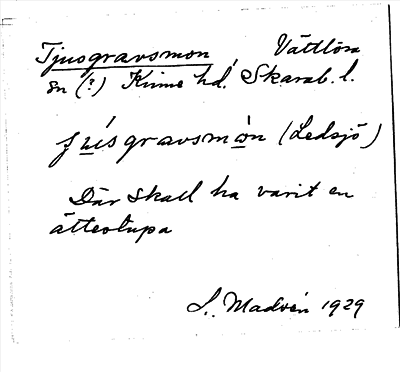 Tjusgravsmon, Vättlösa
sn (?) Kinne hd. Skarab. l.
ʃúsgravsmòn (Ledsjö)
Där skall ha varit en
ättestupa
S. Madvén 1929